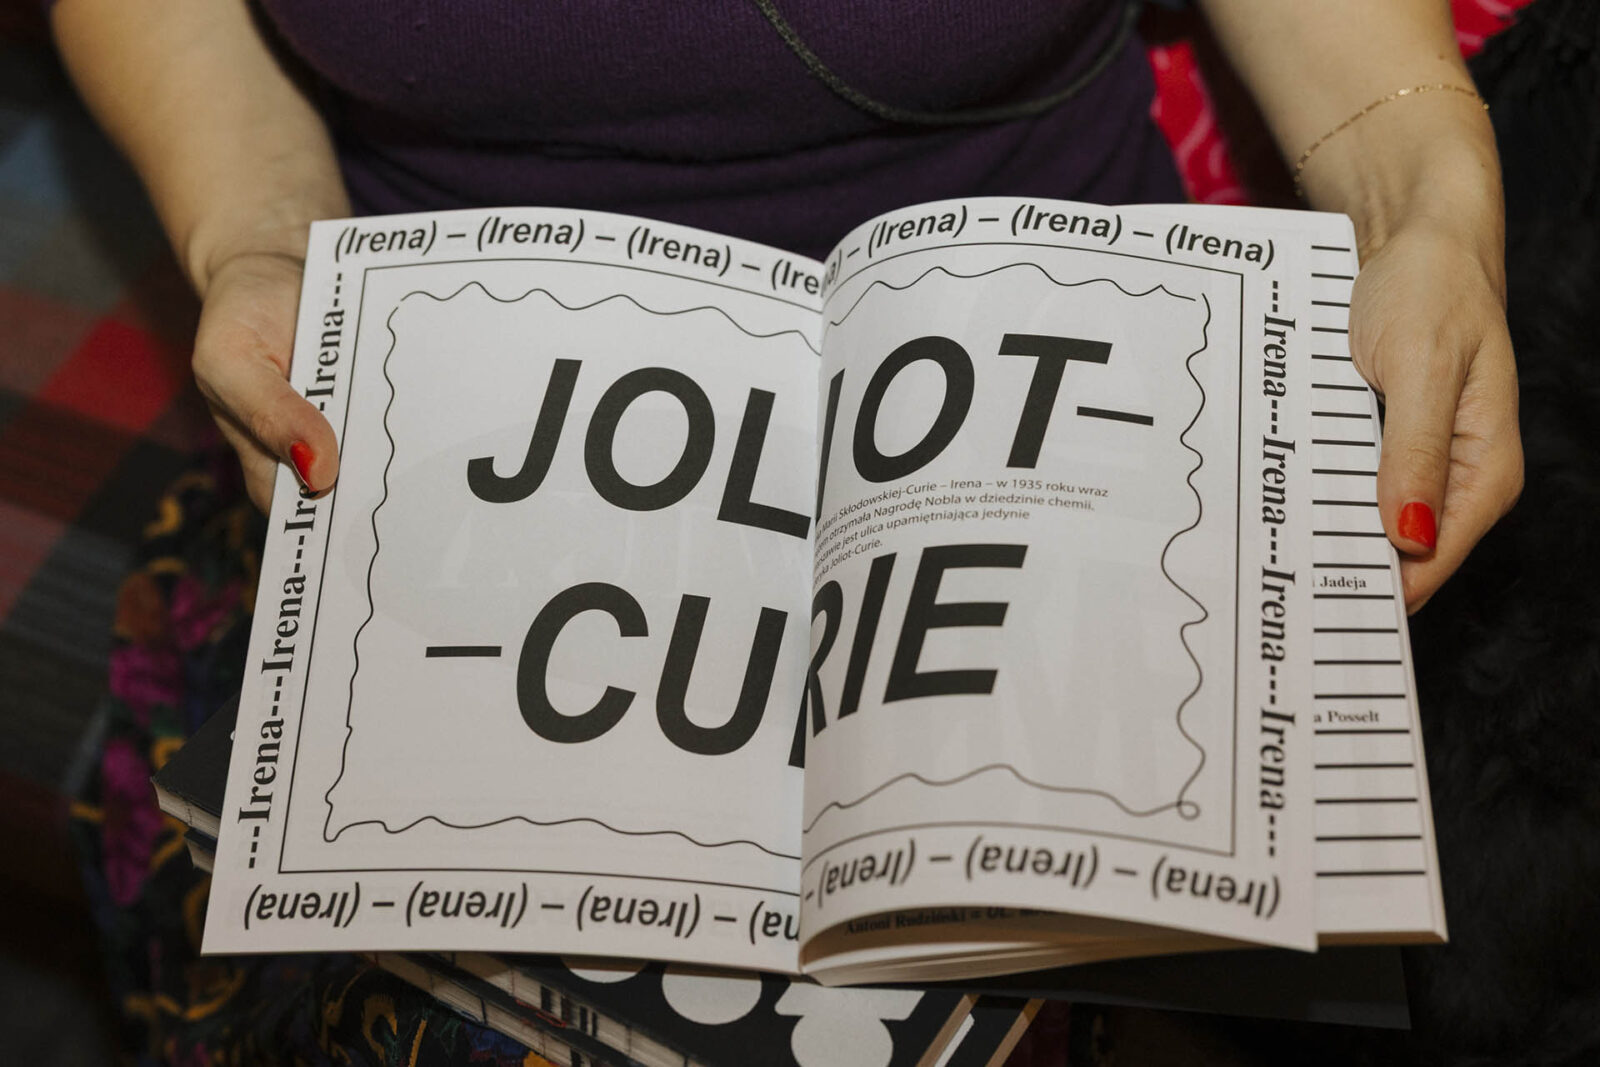 (Irena) – (Irena) – (Irena) –
– (Irena) – (Irena) – (Irena)
---Irena---Irena---Irena---Irena---
JOLIOT–
Marii Skłodowskiej-Curie – Irena – w 1935 roku wraz
otrzymała Nagrodę Nobla w dziedzinie chemii.
jest ulica upamiętniająca jedynie
Joliot-Curie.
–CURIE
---Irena---Irena---Irena---Irena---Irena---
(Irena) – (Irena) – (Irena) –
– (Irena) – (Irena) – (Irena)
Jadeja
Posselt
Antoni Rudziński = UL.